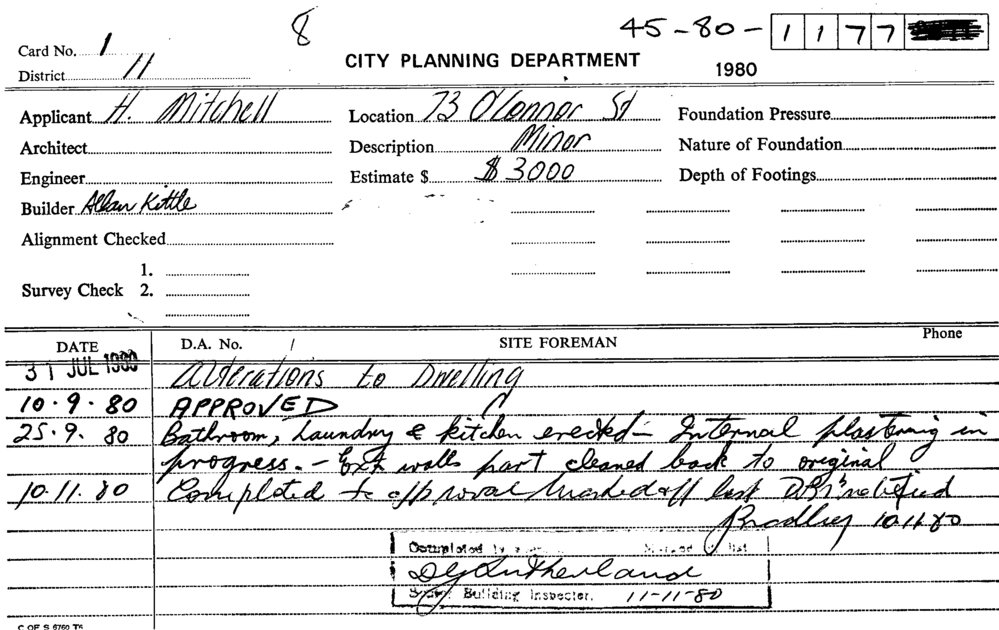 8
45-80-1177
Card No. 1
CITY PLANNING DEPARTMENT
1980
District 11
Applicant H. Mitchell Location 73 O'Connor St Foundation Pressure
Architect Description Minor Nature of Foundation
Engineer Estimate $ $ 3000 Depth of Footings
Builder Allan Kittle
Alignment Checked
1.
Survey Check 2.
DATE D.A. No. SITE FOREMAN Phone
31 JUL 1980 Alterations to Dwelling
10.9.80 APPROVED
25.9.80 Bathroom, Laundry & kitchen erected - Internal plastering in
progress. - Ext walls part cleaned back to original
10.11.80 Completed to approval marked off list notified
Bradley 10.11.80
Completed list
DG Sutherland
Building Inspector. 11-11-80
C OF S 6760 T6